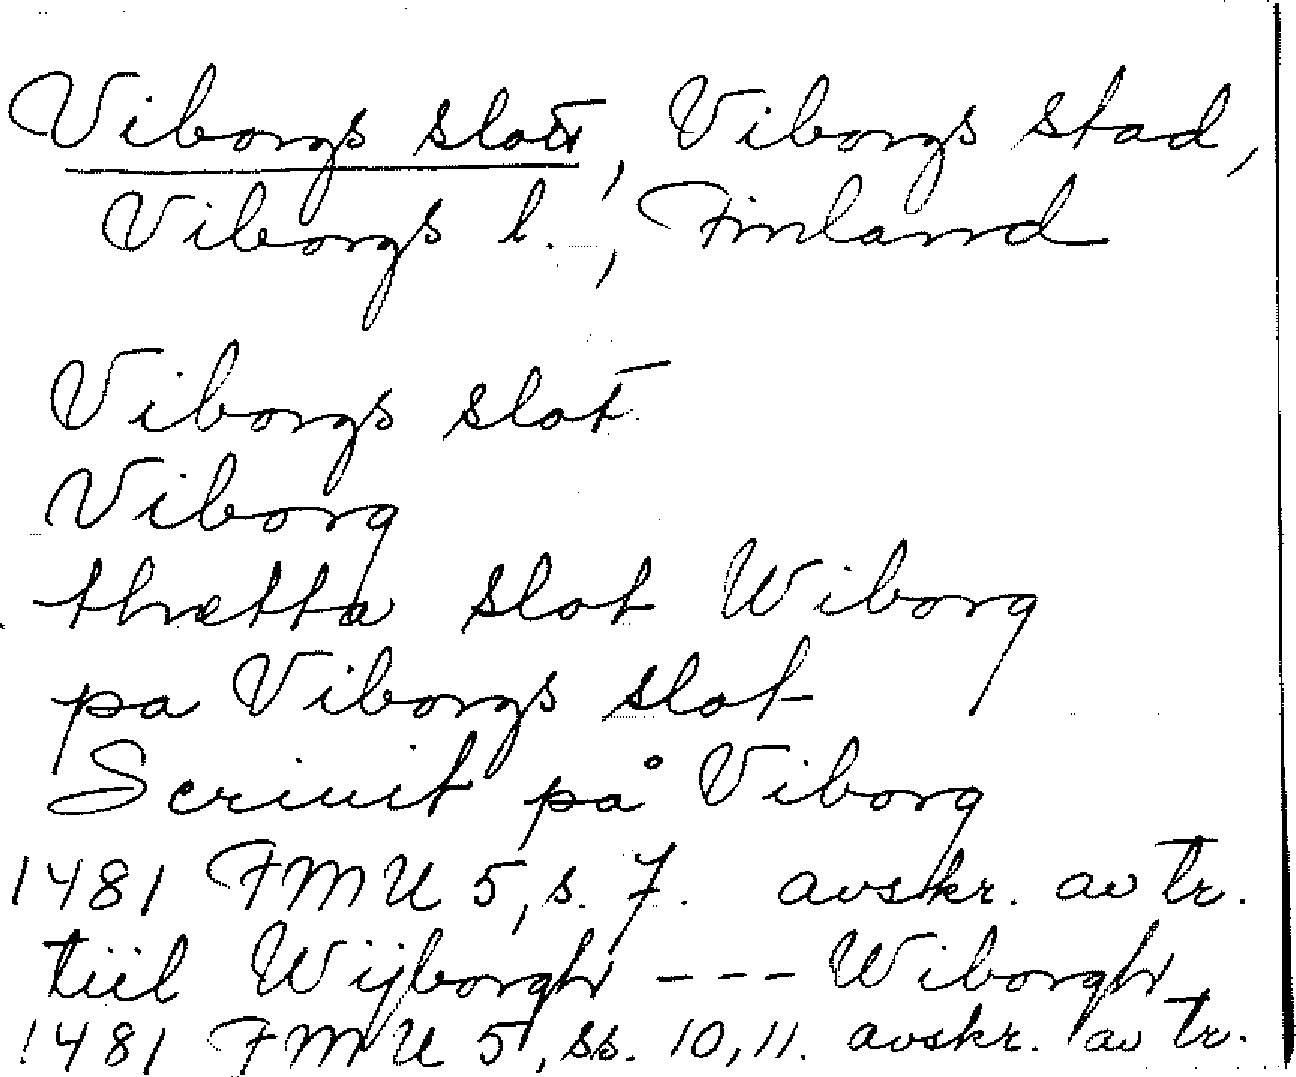 Viborgs slott, Viborgs stad,
Viborgs l., Finland
Viborgs slot
Viborg
thretta slot Wiborg
pa Viborgs slot
Scriuit på Viborg
1481 FMU 5, s. 7. avskr. av tr.
tiil Wijborgh --- Wiborgh
1481 FMU 5, ss. 10, 11. avskr. av tr.